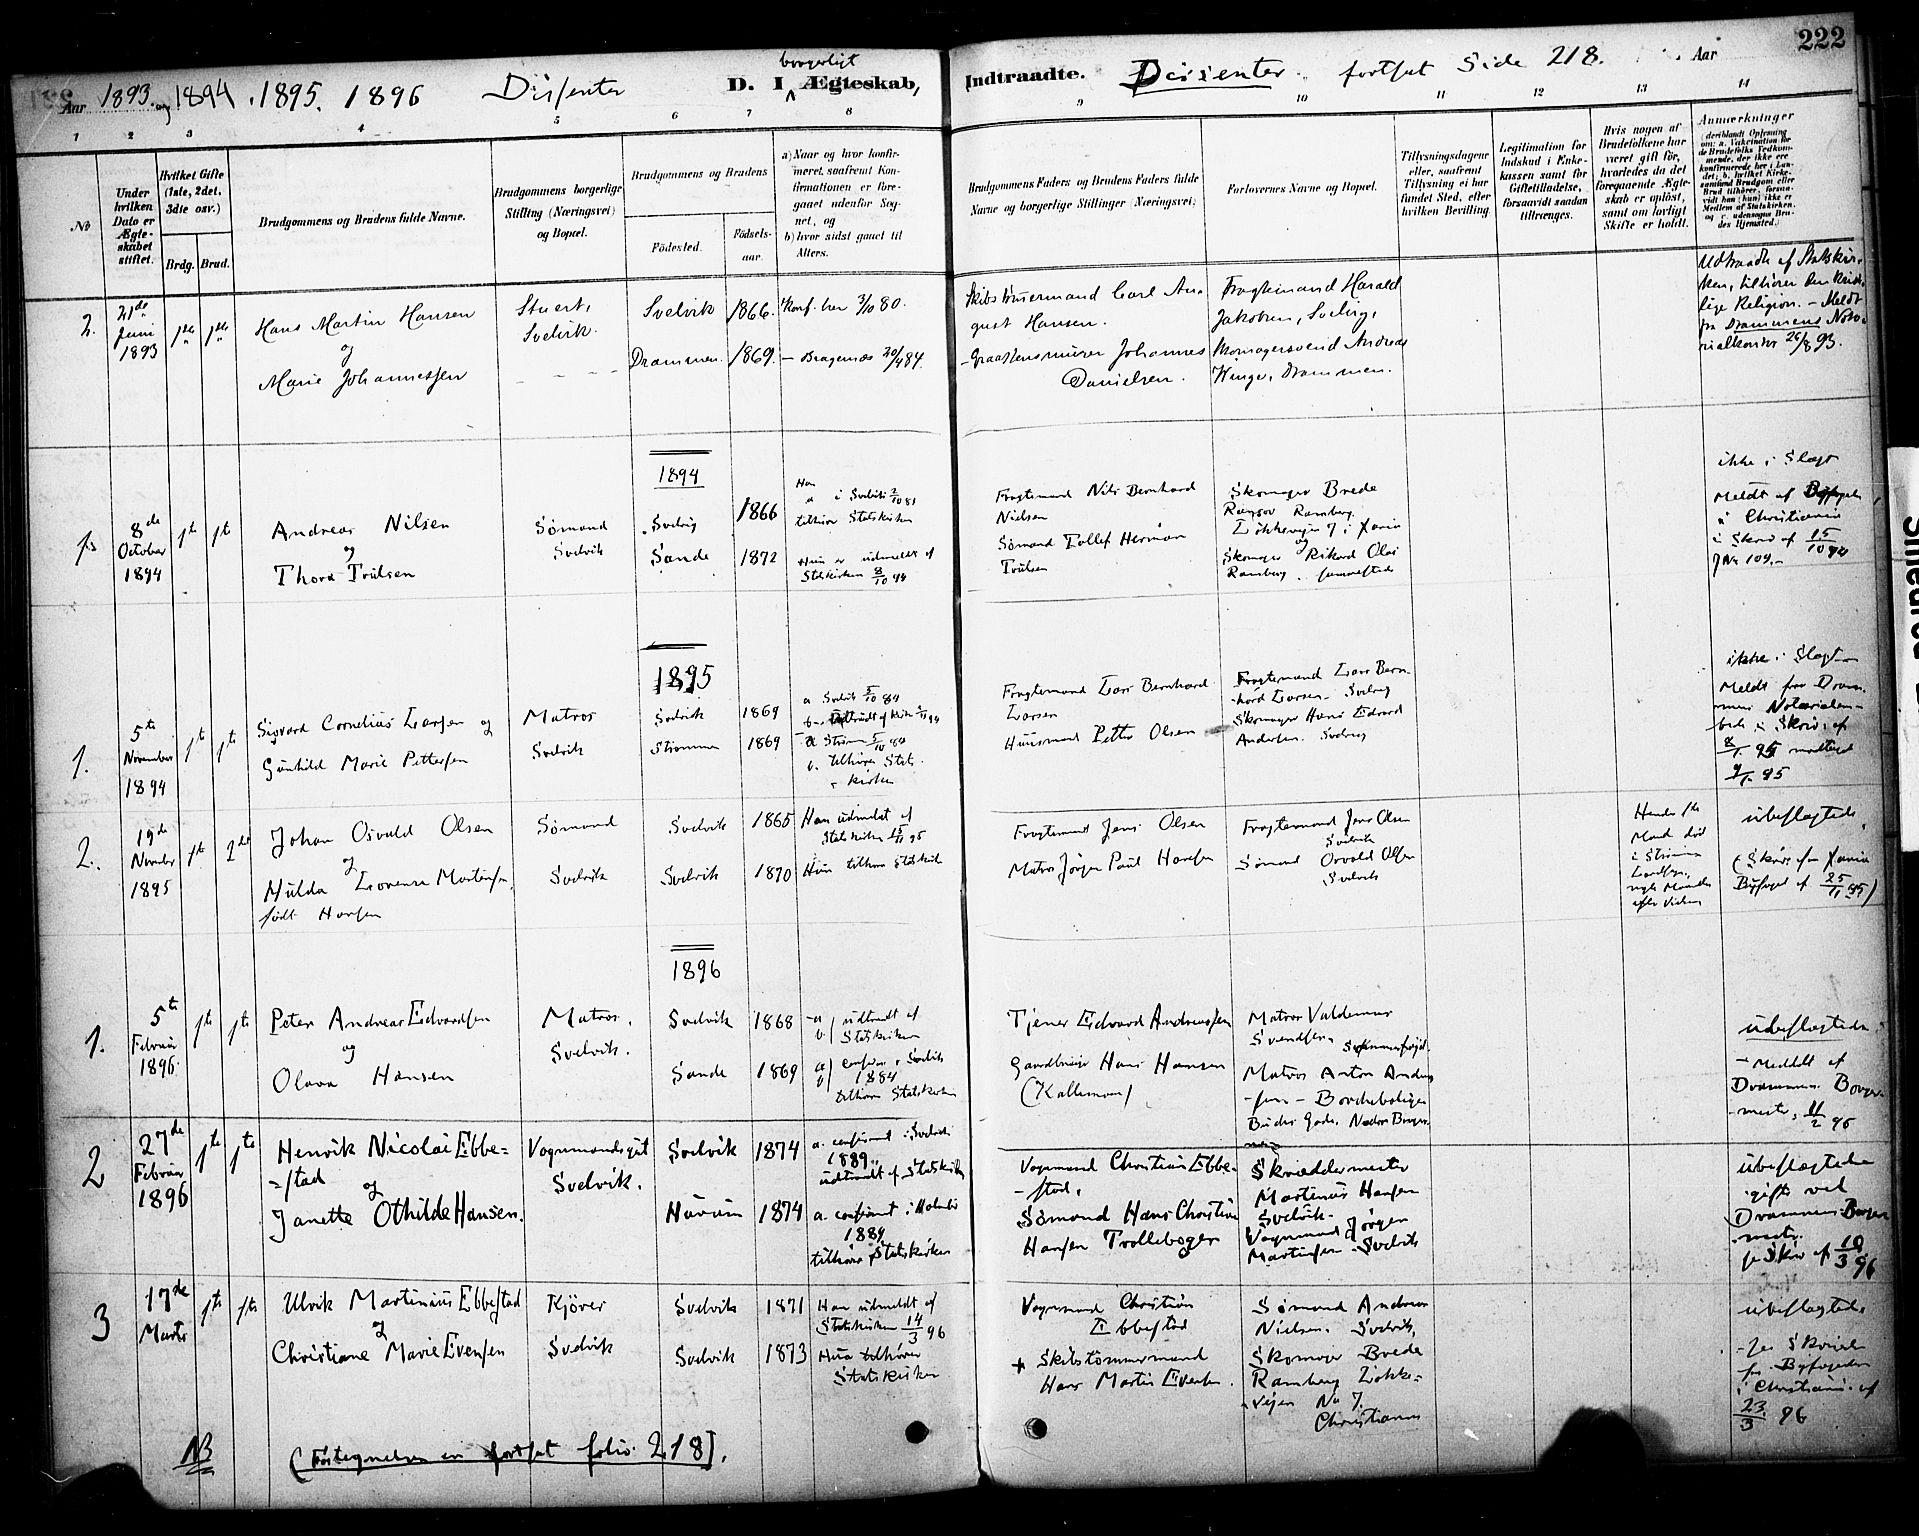 222
Aar 1893 og 1894. 1895. 1896 Dissenter
borgerligt
D. I Ægteskab, Indtraadte. Dissenter fortsat Side 218. Aar
1 2 3 4 5 6 7 8 9 10 11 12 13 14
No
Under hvilken Dato er Ægteskabet stiftet.
Hvilket Gifte (1ste, 2det, 3die osv.)
Brdg. Brud.
Brudgommens og Brudens fulde Navne.
Brudgommens borgerlige Stilling (Næringsvei) og Bopæl.
Brudgommens og Brudens
Födested.
Födsels-aar.
a) Naar og hvor konfirmeret, saafremt Konfirmationen er foregaaet udenfor Sognet, og
b) hvor sidst gaaet til Alters.
Brudgommens Faders og Brudens Faders fulde Navne og borgerlige Stillinger (Næringsvei)
Forlovernes Navne og Bopæl.
Tillysningsdagene eller, saafremt Tillysning ei har fundet Sted, efter hvilken Bevilling.
Legitimation for Indskud i Enkekassen samt for Giftetilladelse, forsaavidt saadan tiltrænges.
Hvis nogen af Brudefolkene har været gift för, hvorledes da det foregaaende Ægteskab er oplöst, samt om lovligt Skifte er holdt.
Anmærkninger
2. 21de Juni 1893 1ste 1ste
Hans Martin Hansen
og
Marie Johannessen
Stuert, Svelvik.
Svelvik 1866. Konf. her 3/10 80.
Drammen. 1869. – Bragernæs 20/4 84.
Skibstømermand Carl August Hansen.
– Graastensmurer Johannes Danielsen.
Fragtemand Harald Jakobsen, Svelvig,
Skomagersvend Andreas Drammen.
Udtraadte af Statskirken, tilhører den Religion. – Meldt fra Drammens Notorialkontor 26/8 93.
1894
1. 8de October 1894 1ste 1ste
Andreas Nilsen
og
Thora Trulsen
Sömand
Svelvik
Svelvig 1866
Sande 1872
Han i Svelvik 2/10 81
tilhører Statskirken
Hun er udmeldt af Statskirken 8/10 94
Fragtemand Nils Bernhard Nielsen
Sömand Tollef Herman Trulsen
Skomager Brede Ramberg
Lökkevejen 7 i Xania
og
Skomager Rikard Olai Ramberg. sammesteds
ikke i Slægt
Meldt af Byfogden i Christiania i Skriv af 15/10 94
JNo 109.
1895
1. 5te November 1894 1ste 1ste
Sigvard Cornelius Larsen og
Gunhild Marie Pettersen
Matros
Svelvik
Svelvik 1869
Strømmen 1869
a. Svelvik 5/10 84
b. Udtraadt af Kirken
a. Strøm 5/10 84
b. tilhører Statskirken
Fragtemand Lars Bernhard Larsen
Huusmand Petter Olsen
Fragtemand Lars Bernhard Larsen. Svelvig
Skomager Hans Edvard Andersen. Svelvig
ikke i Slægt
Meldt fra Drammens Notarialembede i Skriv. af 8/1 95 modtaget 9/1 95
2. 19de November 1895 1ste 2det
Johan Osvald Olsen
og
Hulda Lovense Martinsen,
født Hansen
Sømand
Svelvik
Svelvik 1865
Svelvik 1870
Han udmeldt af Statskirken 15/11 95
Hun tilhører Statskirk
Fragtemand Jens Olsen
Matros Jörgen Paul Hansen
Fragtemand Jens Olsen
Svelvik
Sömand Osvald Olsen
Svelvik
Hendes 1ste Mand död i
ubeslægtede,
(Skriv fra Xania Byfoged af 25/11 95)
1896
1. 5te Februar 1896. 1ste 1ste
Peter Andreas Edvardsen
og
Olava Hansen
Matros.
Svelvik.
Svelvik 1868
Sande 1869
a) b) udtraadt af Statskirken
a) confirm. i Svelvik 1884
b) tilhører Statskirken
Tjener Edvard Andreassen
Gaardbruger Hans Hansen
(Kallemoen)
Matros Valdemar Svendsen.
Matros Anton Andersen –
ubeslægtede.
– Meddelt af Drammens Borgermester, 11/2 96
2 27de Februar 1896 1ste 1ste
Henrik Nicolai Ebbestad
og
Janette Othilde Hansen.
Vognmandsgut
Svelvik.
Svelvik 1874
Hurum 1874
a. confirmert i Svelvik 1889.
udtraadt af Statskirk
a. confirmt i Holmsbo 1889
tilhører Statskirken
Vognmand Christian Ebbestad,
Sømand Hans Christian Hansen Trolleboger
Skræddermester Martinus Hansen
Svelvik.
Vognmand Jörgen Martinsen. Svelvik
ubeslægtede
gifte ved Drammens Borgermester.
Skriv af 10/3 96
3 17de Marts 1ste 1ste
Ulrik Martinius Ebbestad
og
Christiane Marie Evensen
Kjører
Svelvik
Svelvik 1871
Svelvik 1873
Han udmeldt af Statskirken 14/3 96
Hun tilhører Statskirken
Vognmand Christian Ebbestad
+ Skibstømmermand Hans Martin Evensen.
Sømand Andreas Nielsen. Svelvik,
Skomager Brede Ramberg Lökkevejen No 7.
Christiania
ubeslægtede.
– jf. Skrivel. fra Byfogeden i Christiania af 23/3 96
NB (Fortegnelsen er fortsat folio. 218).